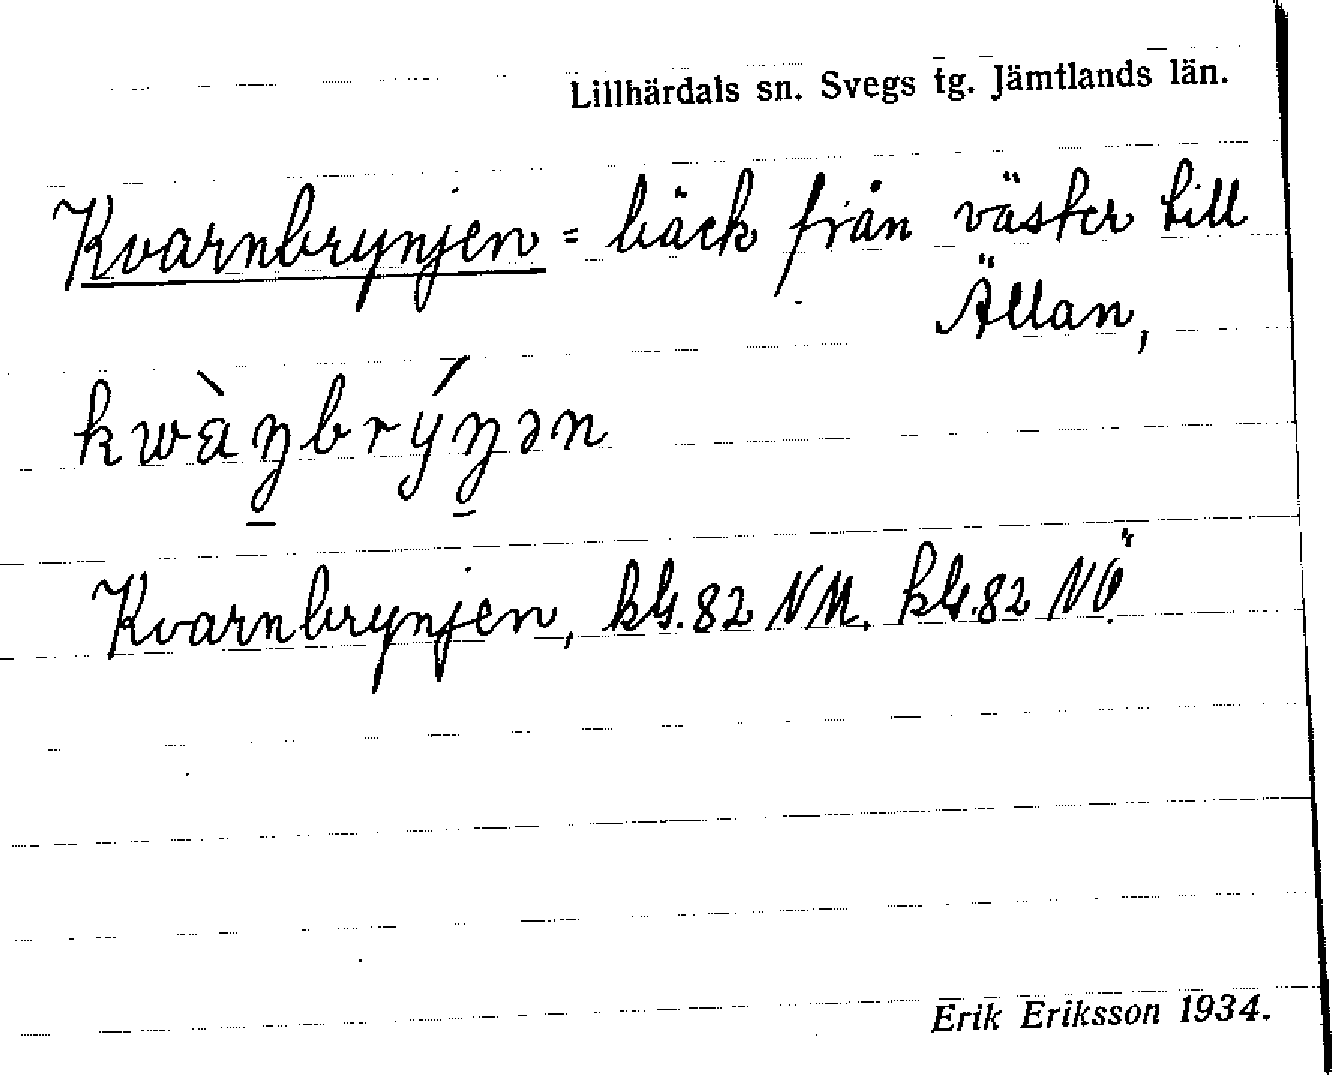 Lillhärdals sn. Svegs tg. Jämtlands län.
Kvarnbrynjen = bäck från väster till
Ällan,
Kvarnbrynjen, kbl. 82 NM. kbl. 82 NÖ.
Erik Eriksson 1934.